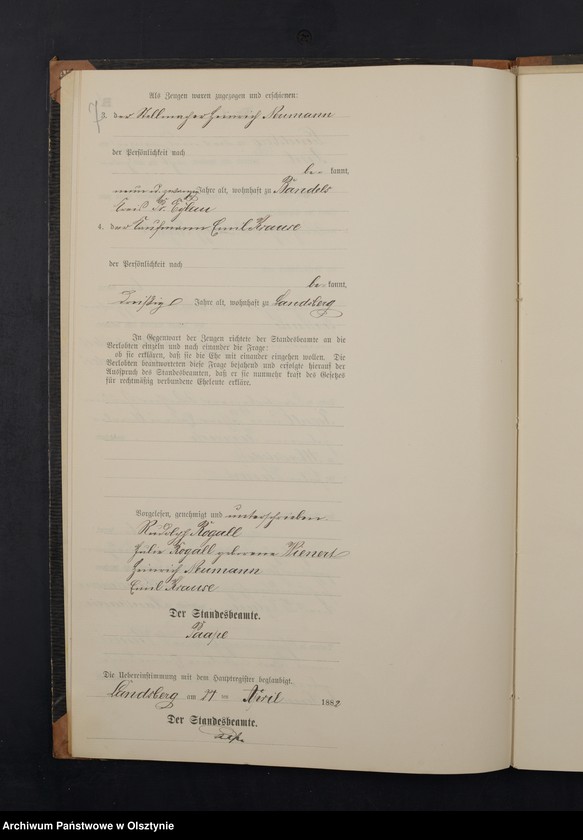 Als Zeugen waren zugezogen und erschienen:
3. der Stellmacher Heinrich Neumann
der Persönlichkeit nach
be kannt,
neun u. zwanzig Jahre alt, wohnhaft zu Bandels
Kreis Pr. Eylau
4. der Kaufmann Emil Krause
der Persönlichkeit nach
be kannt,
dreißig Jahre alt, wohnhaft zu Landsberg
In Gegenwart der Zeugen richtete der Standesbeamte an die
Verlobten einzeln und nach einander die Frage:
ob sie erklären, daß sie die Ehe mit einander eingehen wollen. Die
Verlobten beantworteten diese Frage bejahend und erfolgte hierauf der
Ausspruch des Standesbeamten, daß er sie nunmehr kraft des Gesetzes
für rechtmäßig verbundene Eheleute erkläre.
Vorgelesen, genehmigt und unterschrieben
Rudolph Rogall
Julie Rogall geborene Wienert
Heinrich Neumann
Emil Krause
Der Standesbeamte.
Paape
Die Uebereinstimmung mit dem Hauptregister beglaubigt.
Landsberg am ten April 1882
Der Standesbeamte.
Archiwum Państwowe w Olsztynie